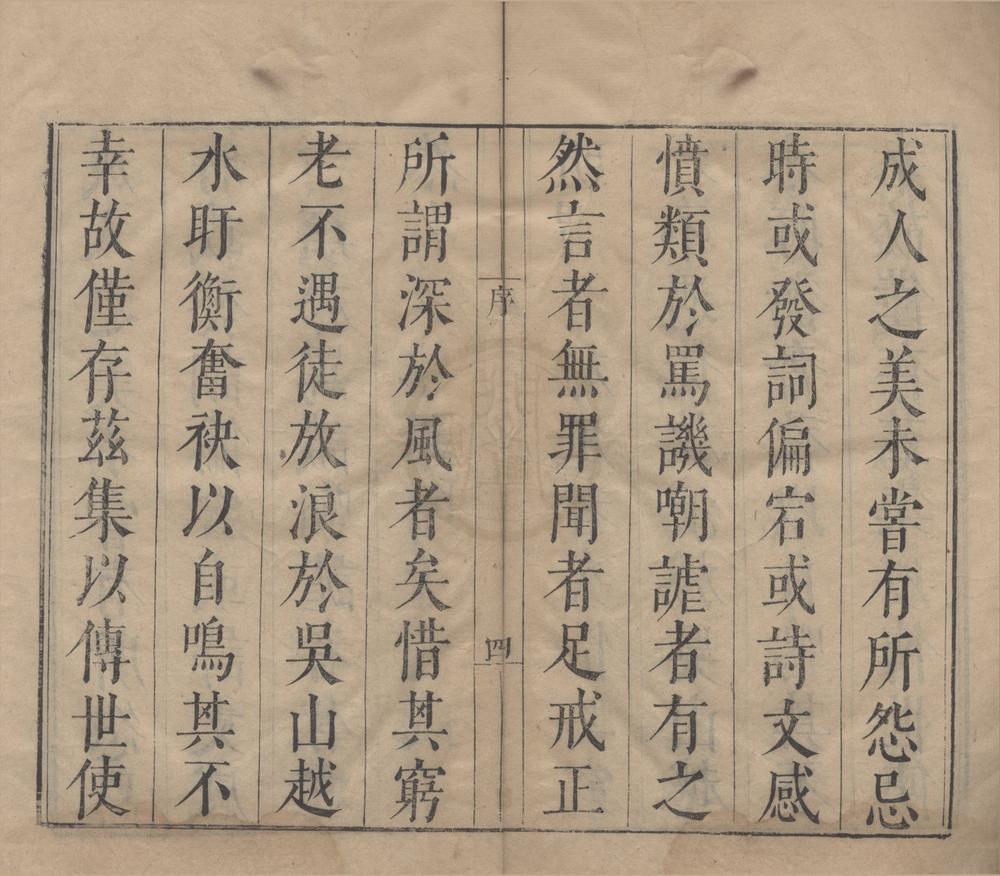 成人之美未嘗有所怨忌
時或發詞偏宕或詩文感
憤類於罵譏嘲謔者有之
然言者無罪聞者足戒正
序
四
所謂深於風者矣惜其窮
老不遇徒放浪於吳山越
水盱衡奮袂以自鳴其不
幸故僅存茲集以傳世使